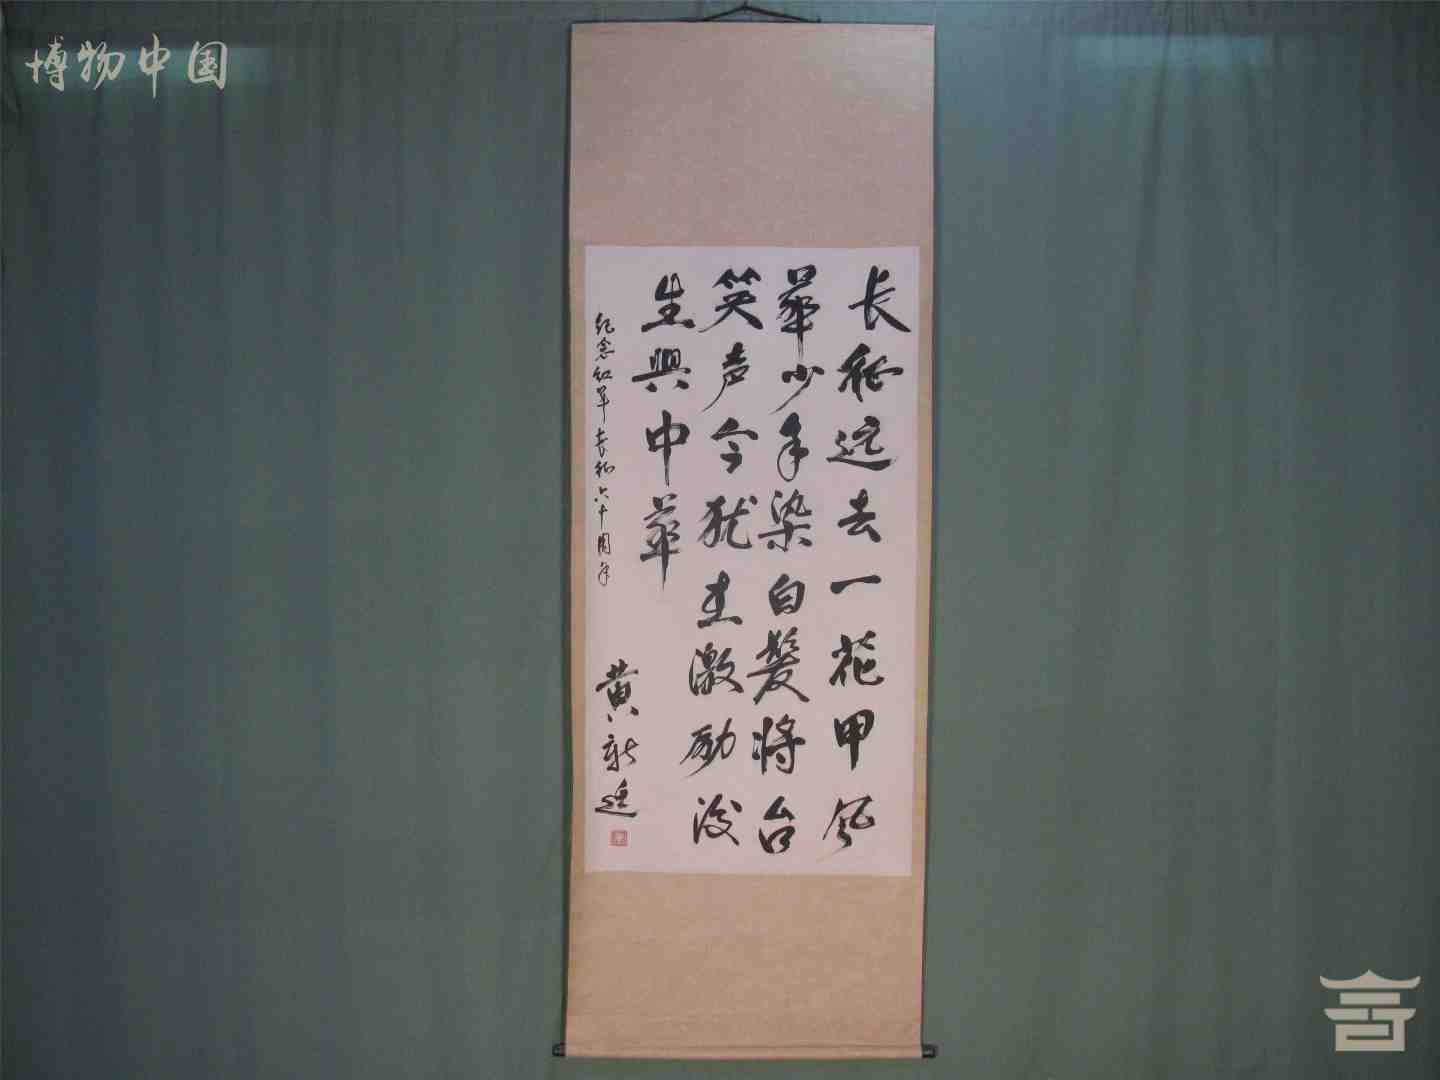 博物中国
长征远去一花甲风
华少年染白发将台
笑声今犹在激励后
生興中華
纪念红军长征六十周年
黄新廷